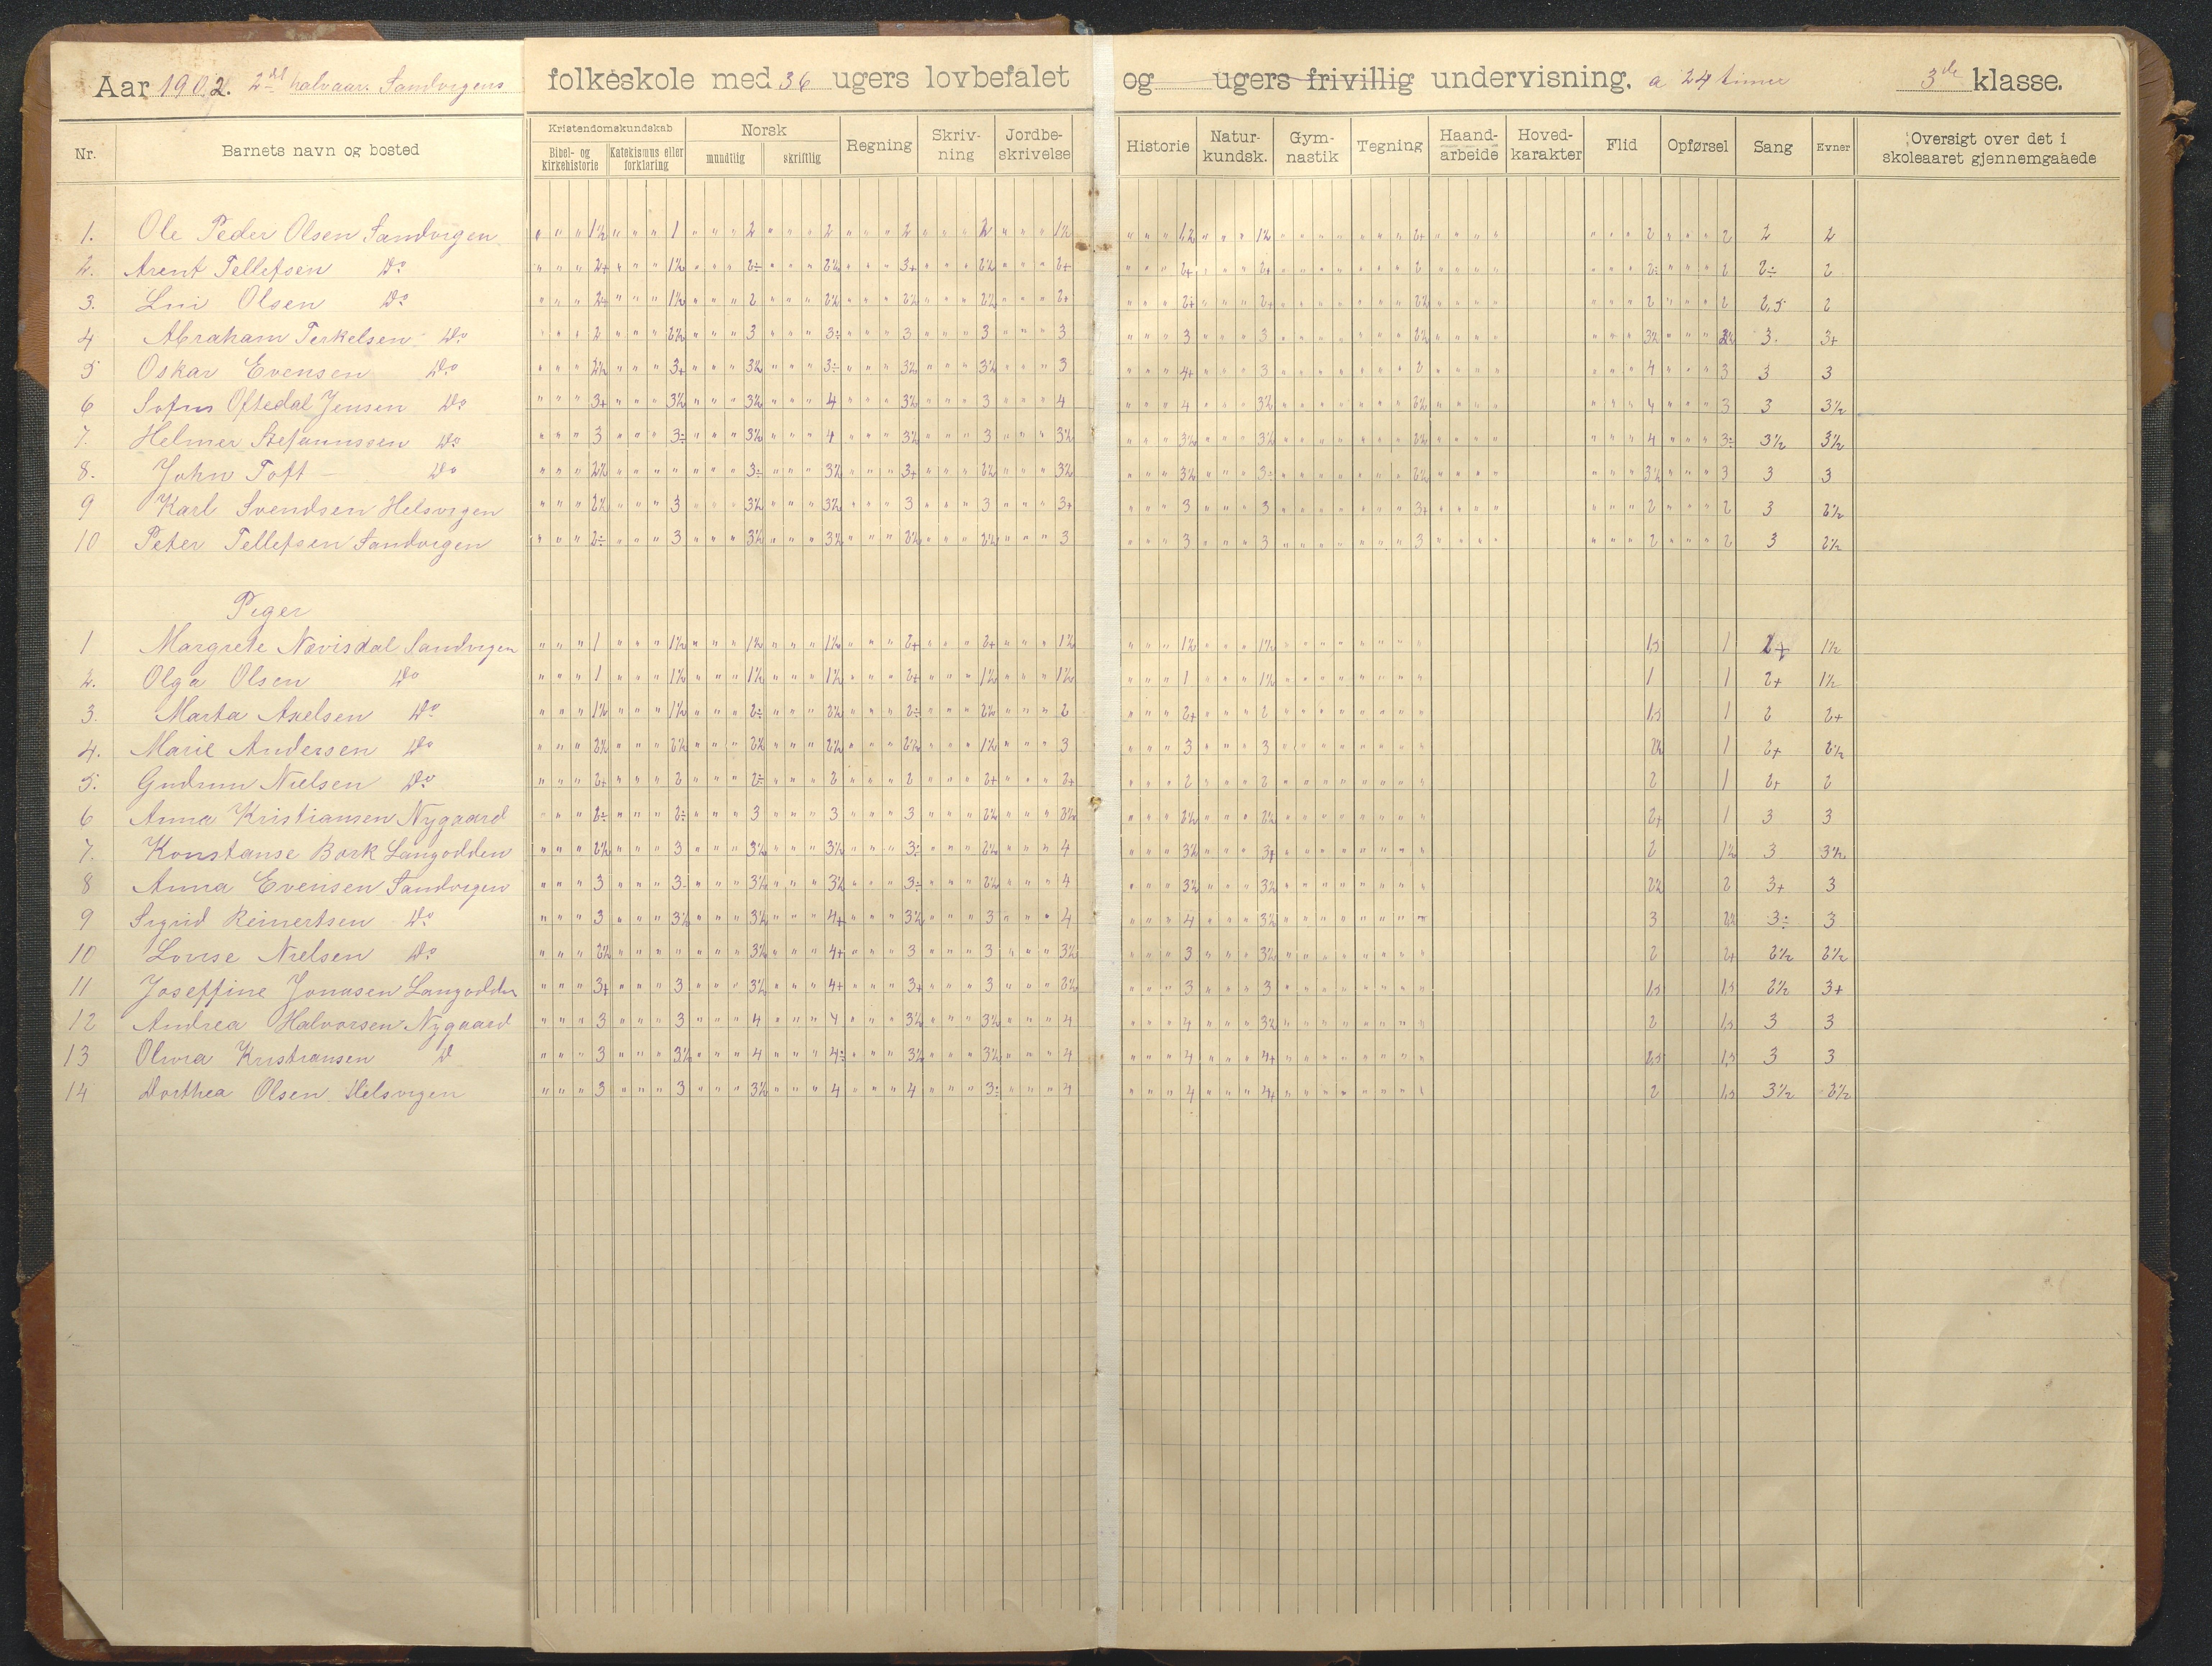 Aar 1902. 2det halvaar. Sandvigens folkeskole med 36 ugers lovbefalet og ugers frivillig undervisning. a 24 timer 3de klasse.
Nr. Barnets navn og bosted Kristendomskundskab Norsk Regning Skriv-ning Jordbe-skrivelse Historie Natur-kundsk. Gym-nastik Tegning Haand-arbeide Hoved-karakter Flid Opførsel Sang Evner Oversigt over det i skoleaaret gjennemgaaede
Bibel- og kirkehistorie Katekismus eller forklaring mundtlig skriftlig
1. Ole Peder Olsen Sandvigen 1½ 1 2 2 2 2 1½ 1,2 1½ 2+ 2 2 2 2
2. Arent Tellefsen Do 2+ 1½ 2÷ 2½ 3+ 2½ 2+ 2+ 2+ 2 2÷ 2 2÷ 2
3. Olsen Do 2+ 1½ 2 2½ 2½ 2½ 2+ 2+ 2+ 2½ 2 2 2,5 2
4 Abraham Terkelsen Do 2 2½ 3 3÷ 3 3 3 3 3 2½ 3½ 3. 3+
5 Oskar Evensen Do 2½ 3+ 3½ 3÷ 3½ 3½ 3 4+ 3 2 4 3 3 3
6 Oftedal Jensen Do 3+ 3½ 3½ 4 3½ 3 4 4 3½ 2½ 4 3 3 3½
7. Helmer Stefanussen Do 3 3÷ 3½ 4 3½ 3 3½ 3½ 3½ 2½ 4 3÷ 3½ 3½
8. John Toft Do 2½ " 3÷ 3½ 3+ 2½ 3½ 3½ 3÷ 2½ 3½ 3 3 3
9 Karl Svendsen Helsvigen 2½ 3 3½ 3½ 3 3 3+ 3 3 3+ 2 2 3 2½
10 Peter Tellefsen Sandvigen 2÷ 3 3½ 3½ 2½ 2½ 3 3 3 3 2 2 3 2½
Piger
1 Margrete Nævisdal Sandvigen 1 1½ 1½ 1½ 2+ 2+ 1½ 1½ 1½ 1,5 1 2+ 1½
2. Olga Olsen Do 1 1½ 1½ 1½ 2+ 1½ 1½ 1 1½ 1 1 2+ 1½
3. Marta Axelsen Do 1½ 1½ 2÷ 2½ 2÷ 2½ 2 2+ 2 1,5 1 2 2+
4. Marie Andersen Do 2½ 2½ 2½ 2½ 2½ 1½ 3 3 3 2½ 1 2+ 2½
5. Gudrun Nielsen Do 2+ 2 2÷ 2 2 2+ 2+ 2 2 2 1 2+ 2
6 Anna Kristiansen Nygaard 2÷ 2÷ 3 3 3 2½ 2½ 2½ 2½ 2+ 1 3 3
7. Konstanse Bork Langodden 2½ 3 3½ 3½ 3÷ 2½ 4 3½ 3+ 2 1½ 3 3½
8 Anna Evensen Sandvigen 3 3 3½ 3½ 3÷ 2½ 4 3½ 3½ 2½ 2 3+ 3
9 Sigrid Reinertsen Do 3 3½ 3½ 4+ 3½ 3 4 4 3½ 3 2½ 3÷ 3
10 Louse Nielsen Do 2½ " 3½ 4+ 3 3 3½ 3 3½ 2 2+ 2½ 2½
11 Joseffine Jonasen Langodden 3+ 3 3½ 4+ 3+ 3 2½ 3 3 1,5 1,5 2½ 3+
12 Andrea Halvorsen Nygaard 3 3 4 4 3½ 3½ 4 4 3½ 2 1,5 3 3
13 Olivia Kristiansen D 3 3½ 4 4÷ 3½ 3½ 4 4 4+ 2,5 1,5 3 3
14 Dorthea Olsen Helsvigen 3 3 3½ 4 4 3÷ 4 4 4+ 2 1,5 3½ 2½